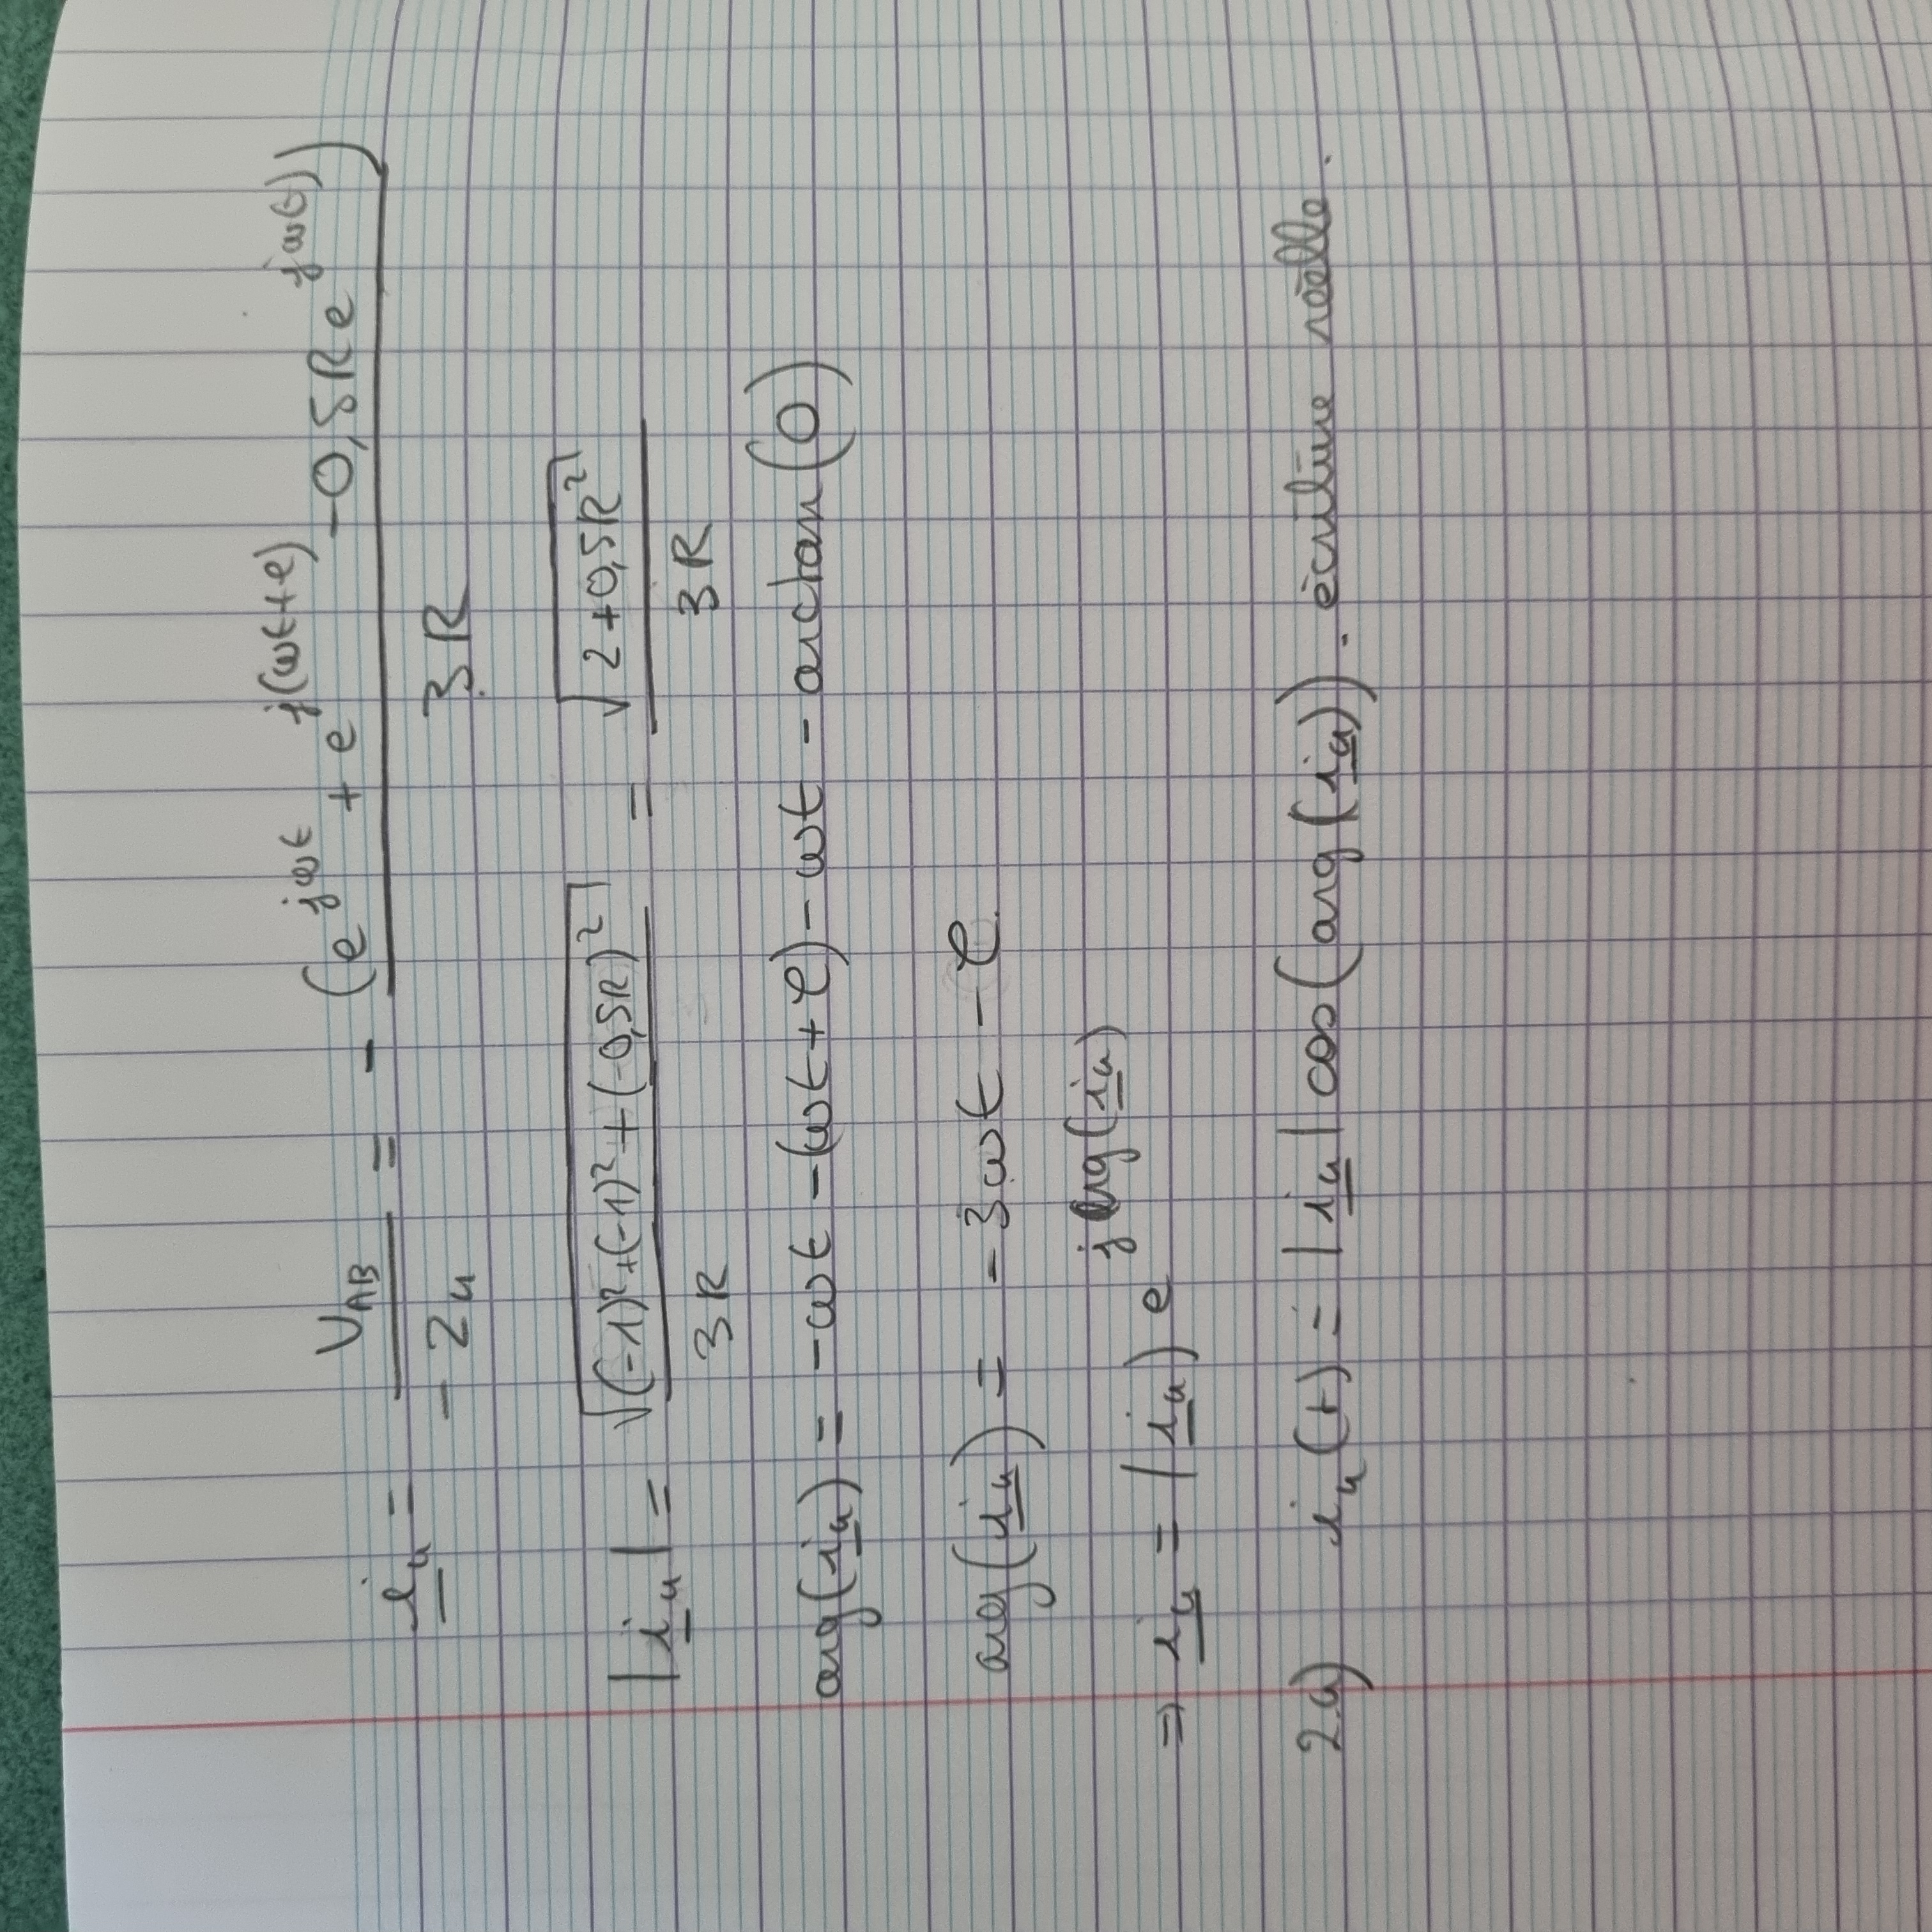 i_u = U_AB / -Z_u = - (e^jωt + e^j(ωt+φ) - 0,5R e^jωt)) / 3R
|i_u| = √((-1)²+(-1)²+(-0,5R)²) / 3R = √(2+0,5R²) / 3R
arg(i_u) = -ωt -(ωt+φ) - ωt - arctan(0)
arg(i_u) = -3ωt - φ
⇒ i_u = |i_u| e^j arg(i_u)
2.a) i_u(t) = |i_u| cos(arg(i_u)). écriture réelle.